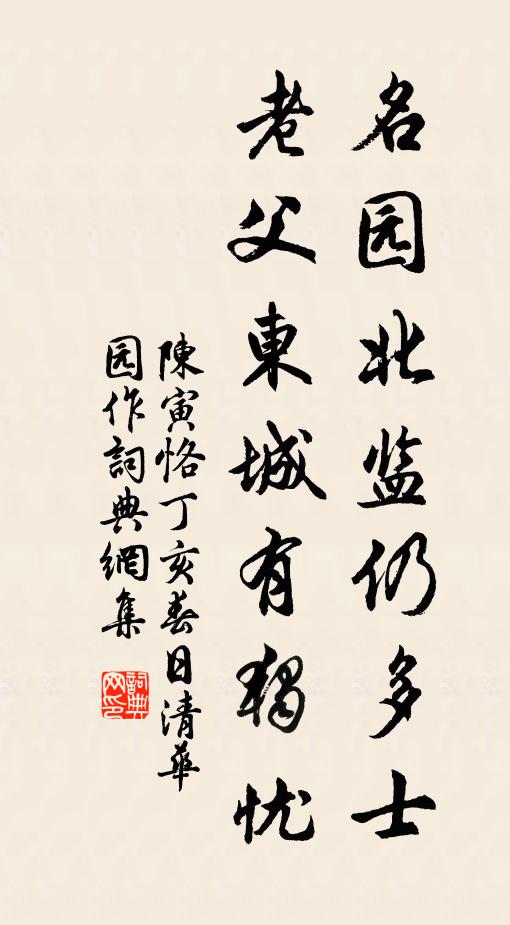 名园北监仍多士
老父東城有独忧
陳寅恪丁亥春日清華
园作詞典網集
詞典网印